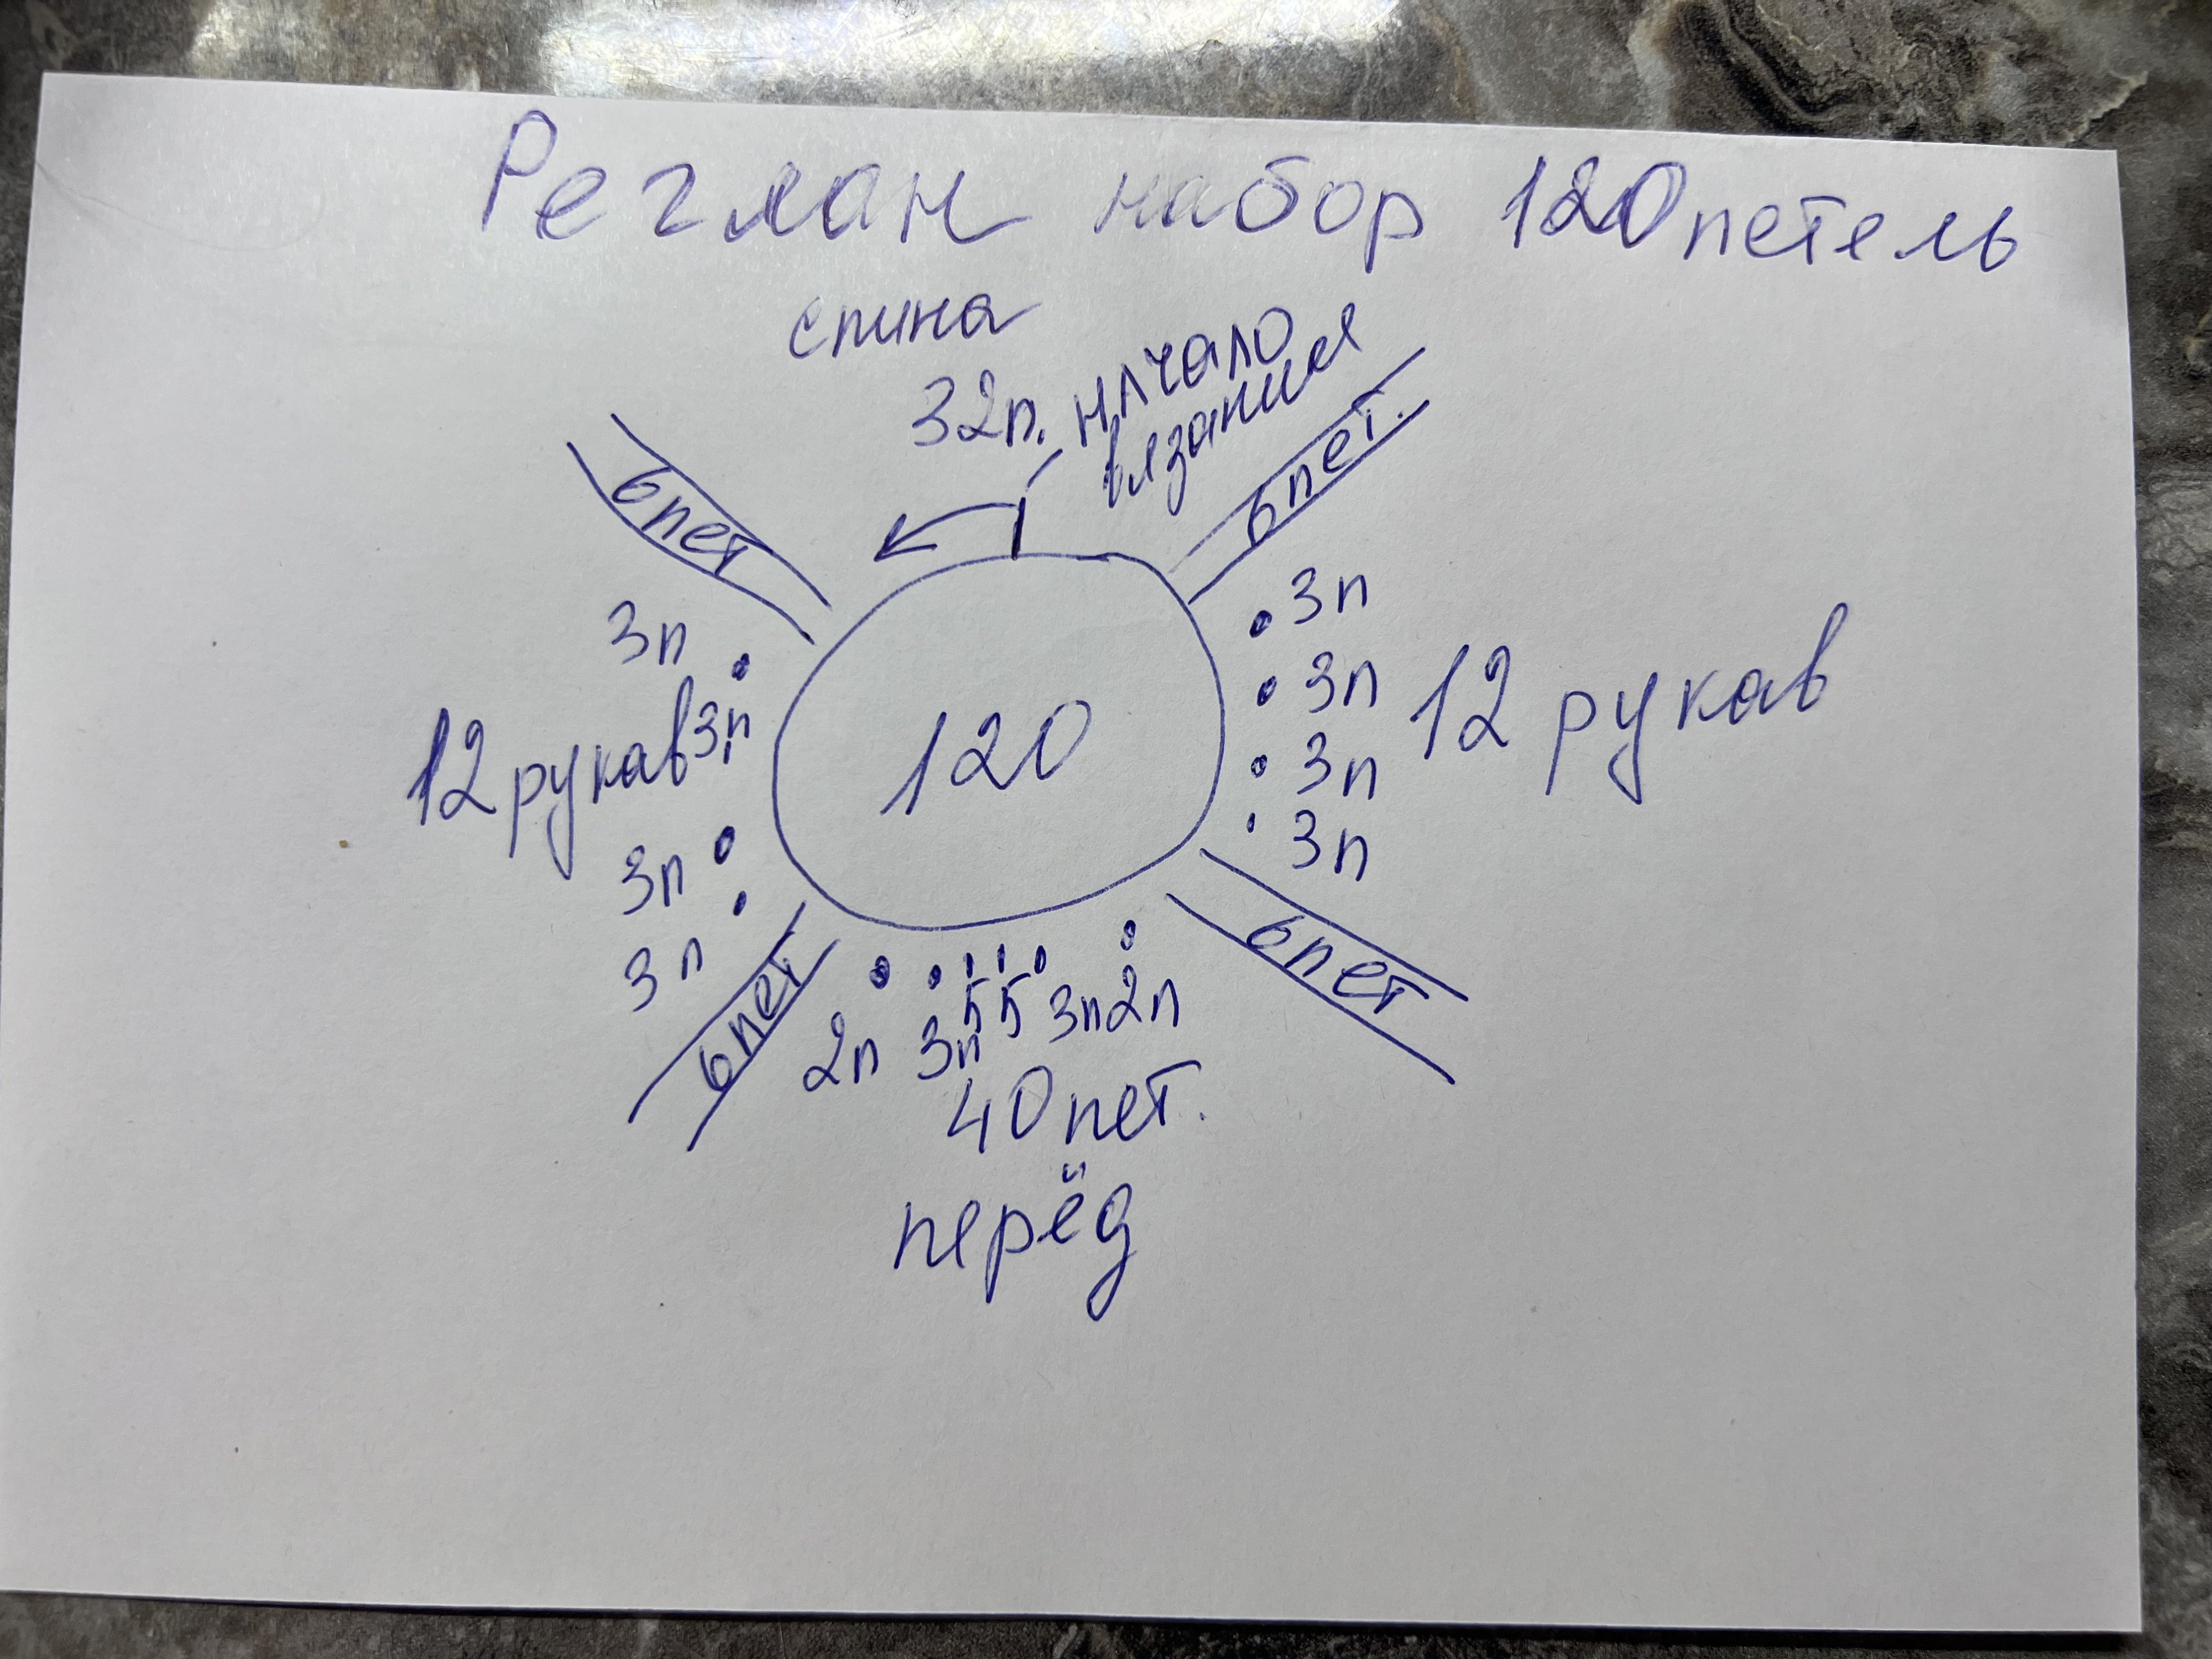 Реглан набор 120 петель
спина
32п. начало
вязания
6 пет
6 пет.
3п
3п
3п
3п
12 рукав
120
3п
3п
12 рукав
3п
3п
6 пет
6 пет
2п 3п 5 5 3п 2п
40 пет.
перёд